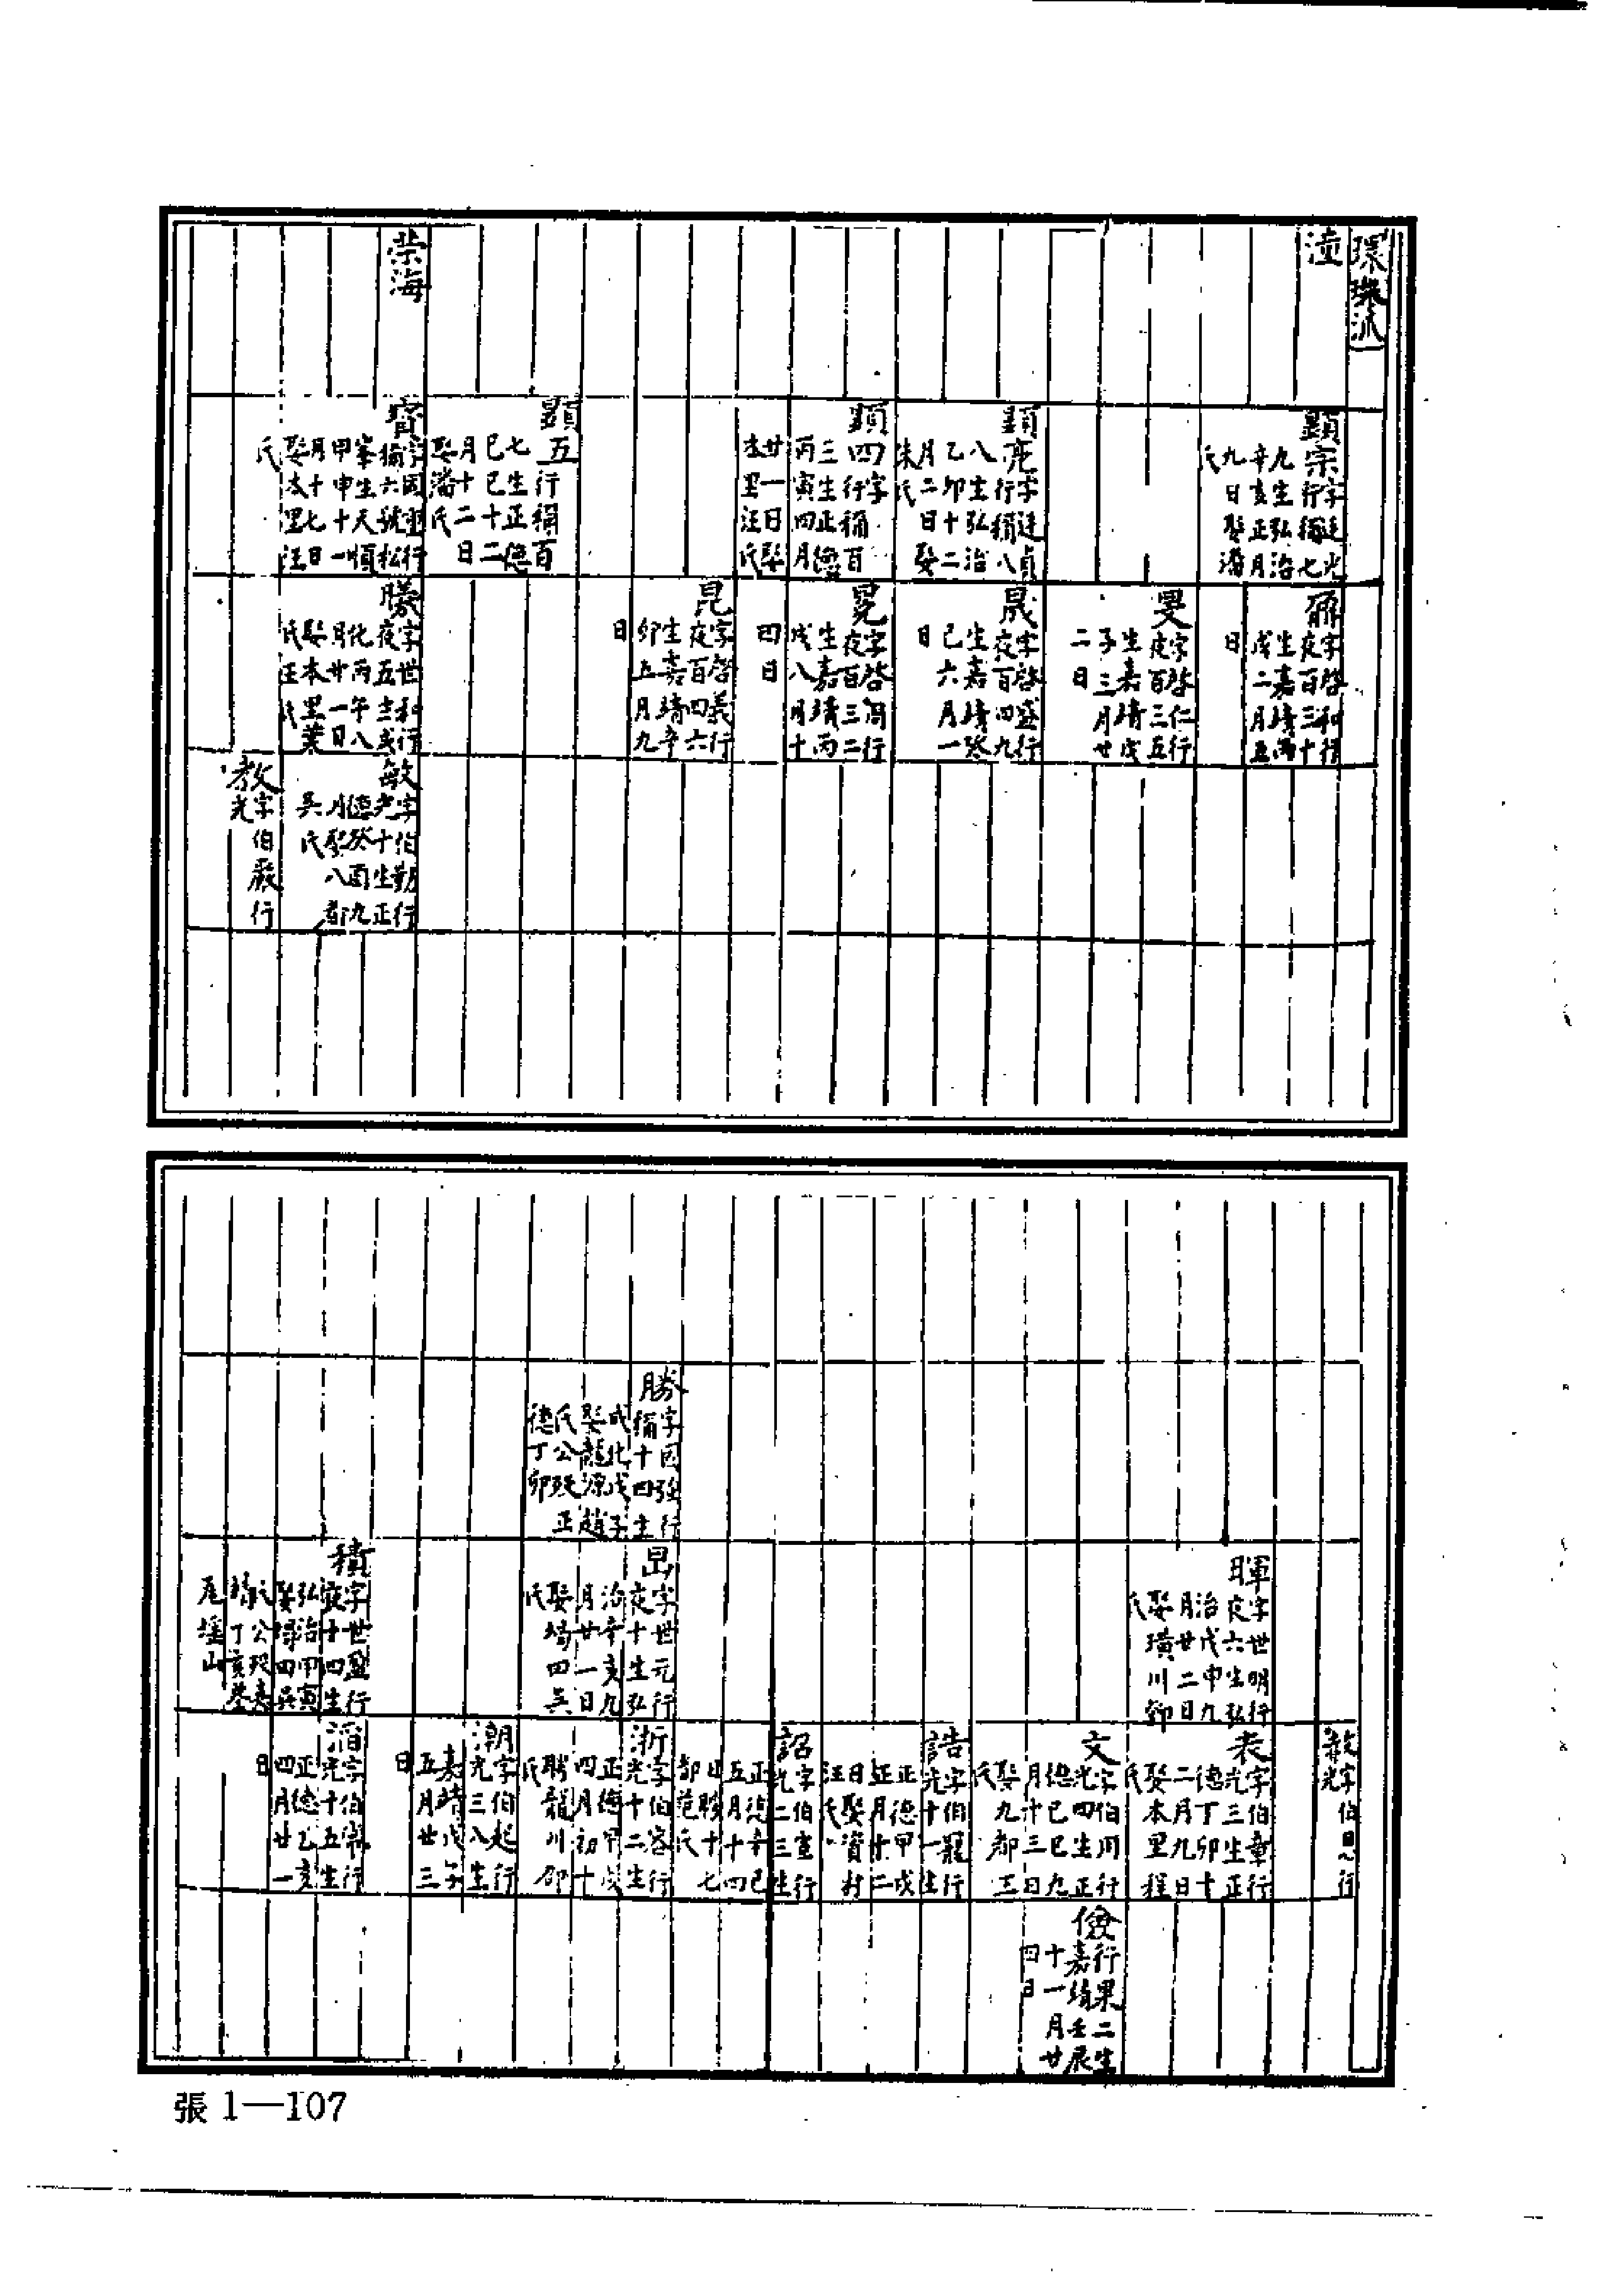 環珠派
潼
榮海
顯宗字廷光
行稱七
九生弘治
辛亥正月
九日娶潘
氏
顯亮字廷貞
行稱八
八生弘治
乙卯十二
月二日娶
朱氏
顯四字
行稱百
三生正德
丙寅四月
廿一日娶
本里汪氏
顯五行稱百
七生正德
己巳十二
月十二日
娶潘氏
字國
行
稱六號松
峯生天順
甲申十一
月十七日
娶本里汪
氏
字啓和行
夜百三十
生嘉靖丙
戌二月五
日
旻字啓仁行
夜百三五
生嘉靖戊
子三月廿
二日
晟字啓盛行
夜百四九
生嘉靖癸
巳六月一
日
冕字啓周行
夜百三二
生嘉靖丙
戌八月十
四日
昆字啓義行
夜百四六
生嘉靖辛
卯五月九
日
字世和行
夜五生成
化丙午八
月廿一日
娶本里葉
氏汪氏
敏字伯勤行
光十生正
德癸酉九
月娶八都
吳氏
教字伯嚴行
光
勝字國強行
稱十四生
成化戊子
娶龍源趙
氏公歿正
德丁卯
暉字世明行
夜六生弘
治戊申九
月廿二日
娶璜川鄧
氏
昆字世元行
夜十生弘
治辛亥九
月廿一日
娶塲田吳
氏
積字世盈行
夜十四生
弘治甲寅
娶塲田吳
氏公歿嘉
靖丁亥葬
尾塘山
字伯 行
光
表字伯章行
光三生正
德丁卯十
二月九日
娶本里程
氏
文字伯用行
光四生正
德己巳九
月廿三日
娶九都王
氏
誥字伯寵行
光十一生
正德甲戌
正月十二
日娶資村
汪氏
詔字伯宣行
光二三生
正德辛巳
五月十四
日歿十七
都范氏
浙字伯容行
光十二生
正德甲戌
四月初十
聘龍川邵
氏
潮字伯起行
光三八生
嘉靖戊子
五月廿三
日
滔字伯寧行
光十五生
正德乙亥
四月廿一
日
儉行果二生
嘉靖壬辰
十一月廿
四日
張 1—107